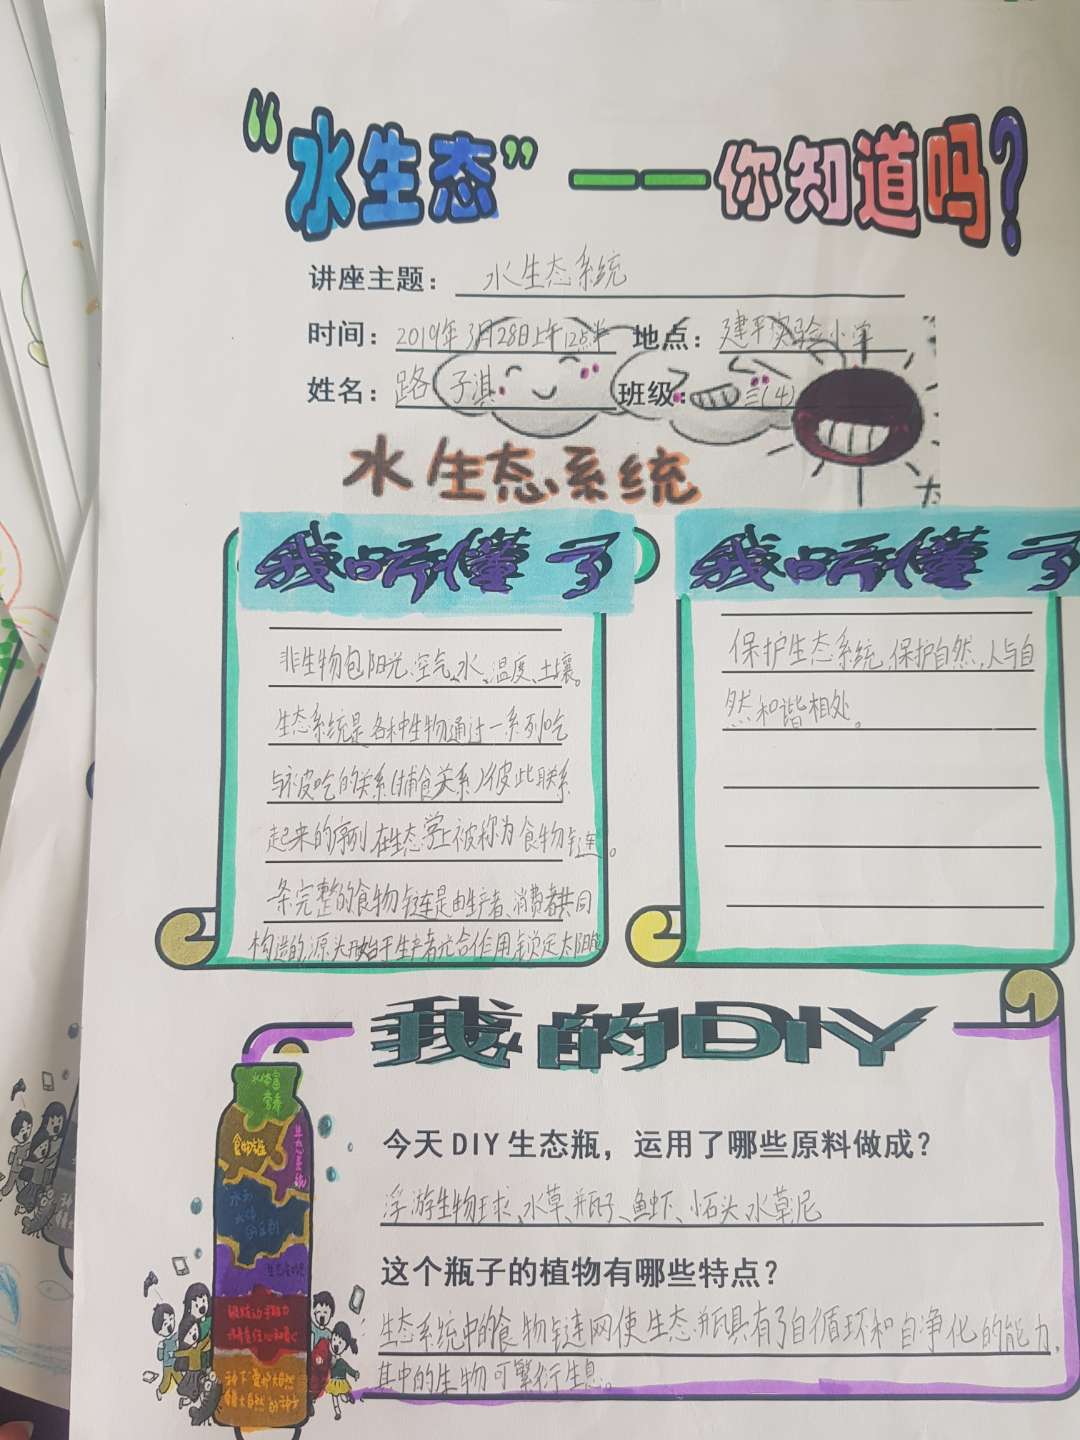 “水生态”——你知道吗？
讲座主题：水生态系统
时间：2019年3月28日上午12点半 地点：建平实验小学
姓名：路子淇 班级：三(4)
水生态系统
我听懂了
非生物包阳光、空气、水、温度、土壤。
生态系统是各种生物通过一系列吃
与被吃的关系(捕食关系)彼此联系
起来的序列,在生态学上被称为食物链。
一条完整的食物链是由生产者、消费者共同
构造的,源头开始于生产者光合作用锁定太阳能
我听懂了
保护生态系统,保护自然,人与自
然和谐相处。
我的DIY
水体富
营养
食物链
生态系统
今天DIY生态瓶，运用了哪些原料做成？
浮游生物球、水草、瓶子、鱼虾、小石头、水草泥
这个瓶子的植物有哪些特点？
生态系统中的食物链网使生态瓶具有了自循环和自净化的能力,
其中的生物可繁衍生息。